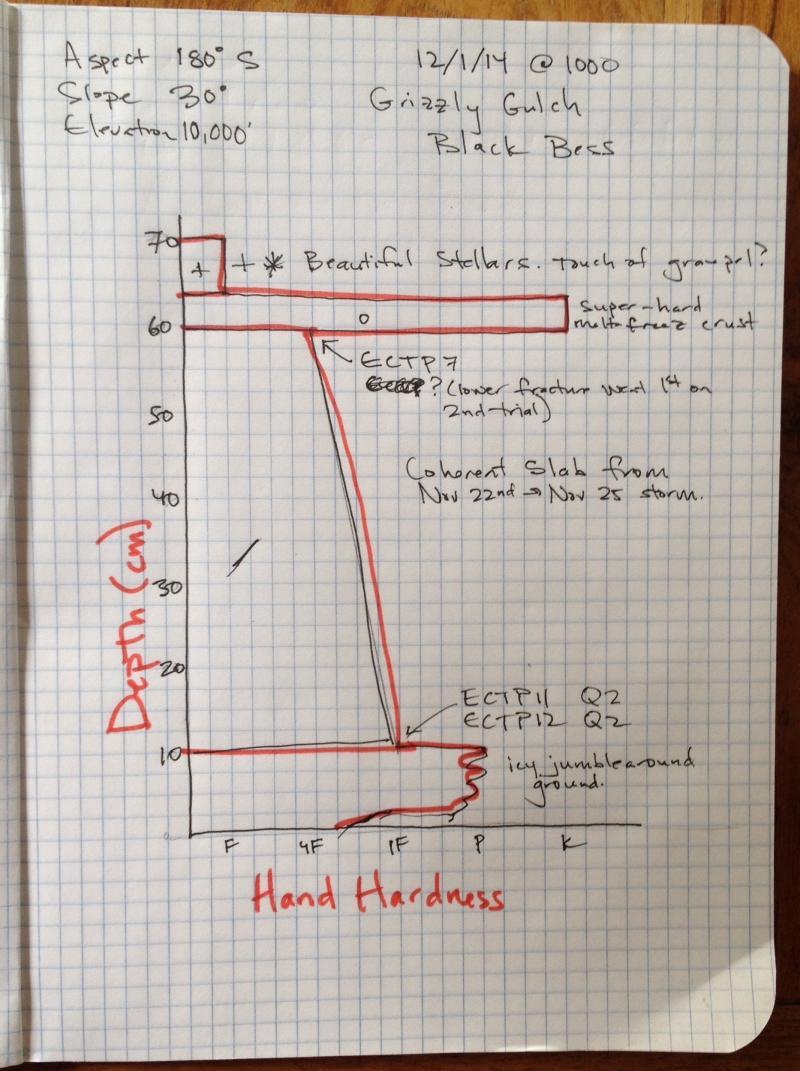 Aspect 180° S
Slope 30°
Elevation 10,000'
12/1/14 @ 1000
Grizzly Gulch
Black Bess
70
+ + * Beautiful Stellars. Touch of graupel?
super-hard
melt-freez crust
60
o
ECTP7
? (lower fracture went 1st on
2nd-trial)
50
Coherent Slab from
Nov 22nd → Nov 25 storm.
40
/
30
20
Depth (cm)
ECTP11 Q2
ECTP12 Q2
10
icy jumble around
ground.
0
F 4F 1F P K
Hand Hardness